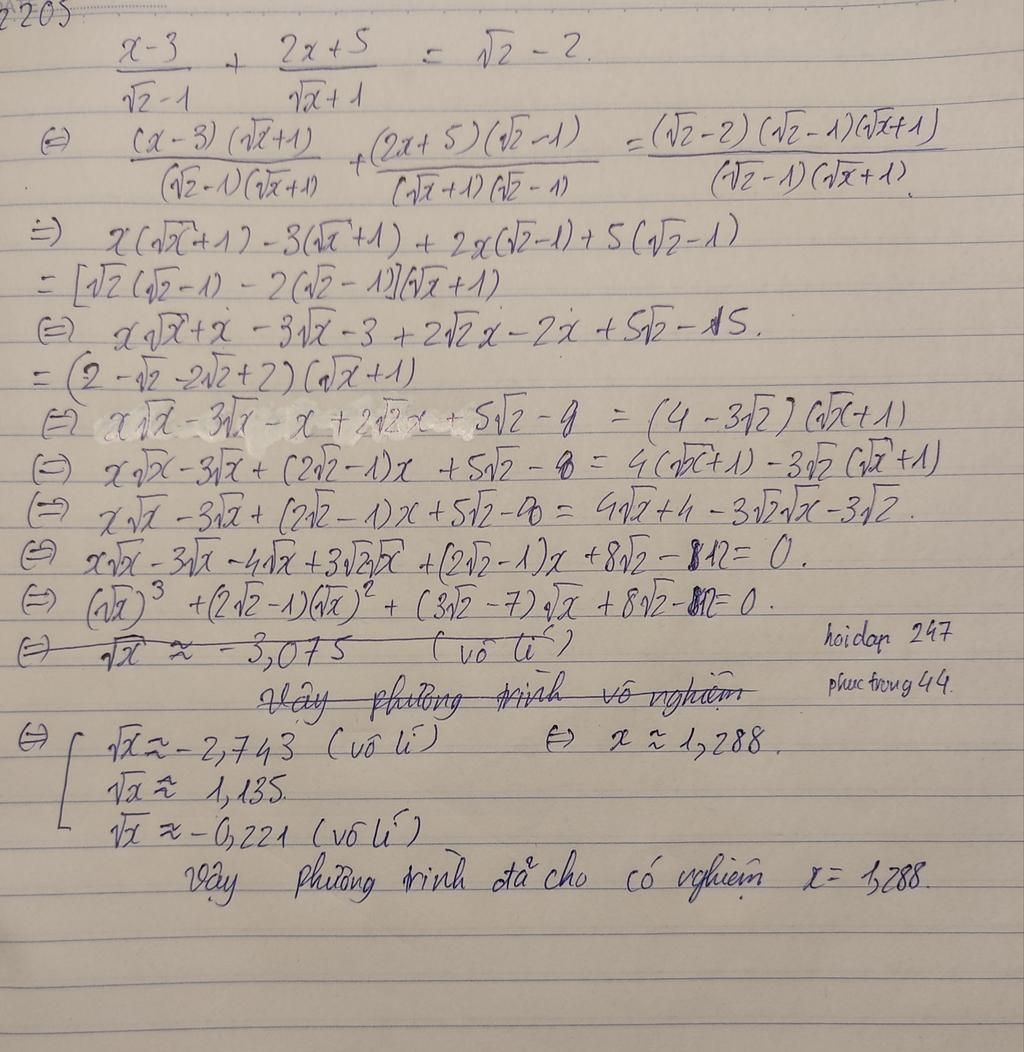 2205
(x-3)/(√2-1) + (2x+5)/(√x+1) = √2 - 2.
⇔ (x-3)(√x+1)/((√2-1)(√x+1)) + (2x+5)(√2-1)/((√x+1)(√2-1)) = (√2-2)(√2-1)(√x+1)/((√2-1)(√x+1)).
⇒ x(√x+1) - 3(√x+1) + 2x(√2-1) + 5(√2-1)
= [√2(√2-1) - 2(√2-1)](√x+1)
⇔ x√x + x - 3√x - 3 + 2√2x - 2x + 5√2 - 5.
= (2 - √2 - 2√2 + 2)(√x+1)
⇔ x√x - 3√x - x + 2√2x + 5√2 - 8 = (4 - 3√2)(√x+1)
⇔ x√x - 3√x + (2√2-1)x + 5√2 - 8 = 4(√x+1) - 3√2(√x+1)
⇔ x√x - 3√x + (2√2-1)x + 5√2 - 8 = 4√x + 4 - 3√2√x - 3√2.
⇔ x√x - 3√x - 4√x + 3√2√x + (2√2-1)x + 8√2 - 12 = 0.
⇔ (√x)³ + (2√2-1)(√x)² + (3√2-7)√x + 8√2 - 12 = 0.
⇔ √x ≈ -3,075 (vô lí) hoidap 247
Vậy phường trình vô nghiệm phuctrung44.
⇔ [ √x ≈ -2,743 (vô lí) ⇔ x ≈ 1,288.
√x ≈ 1,135.
√x ≈ -0,221 (vô lí)
Vậy phường trình đã cho có nghiệm x = 1,288.